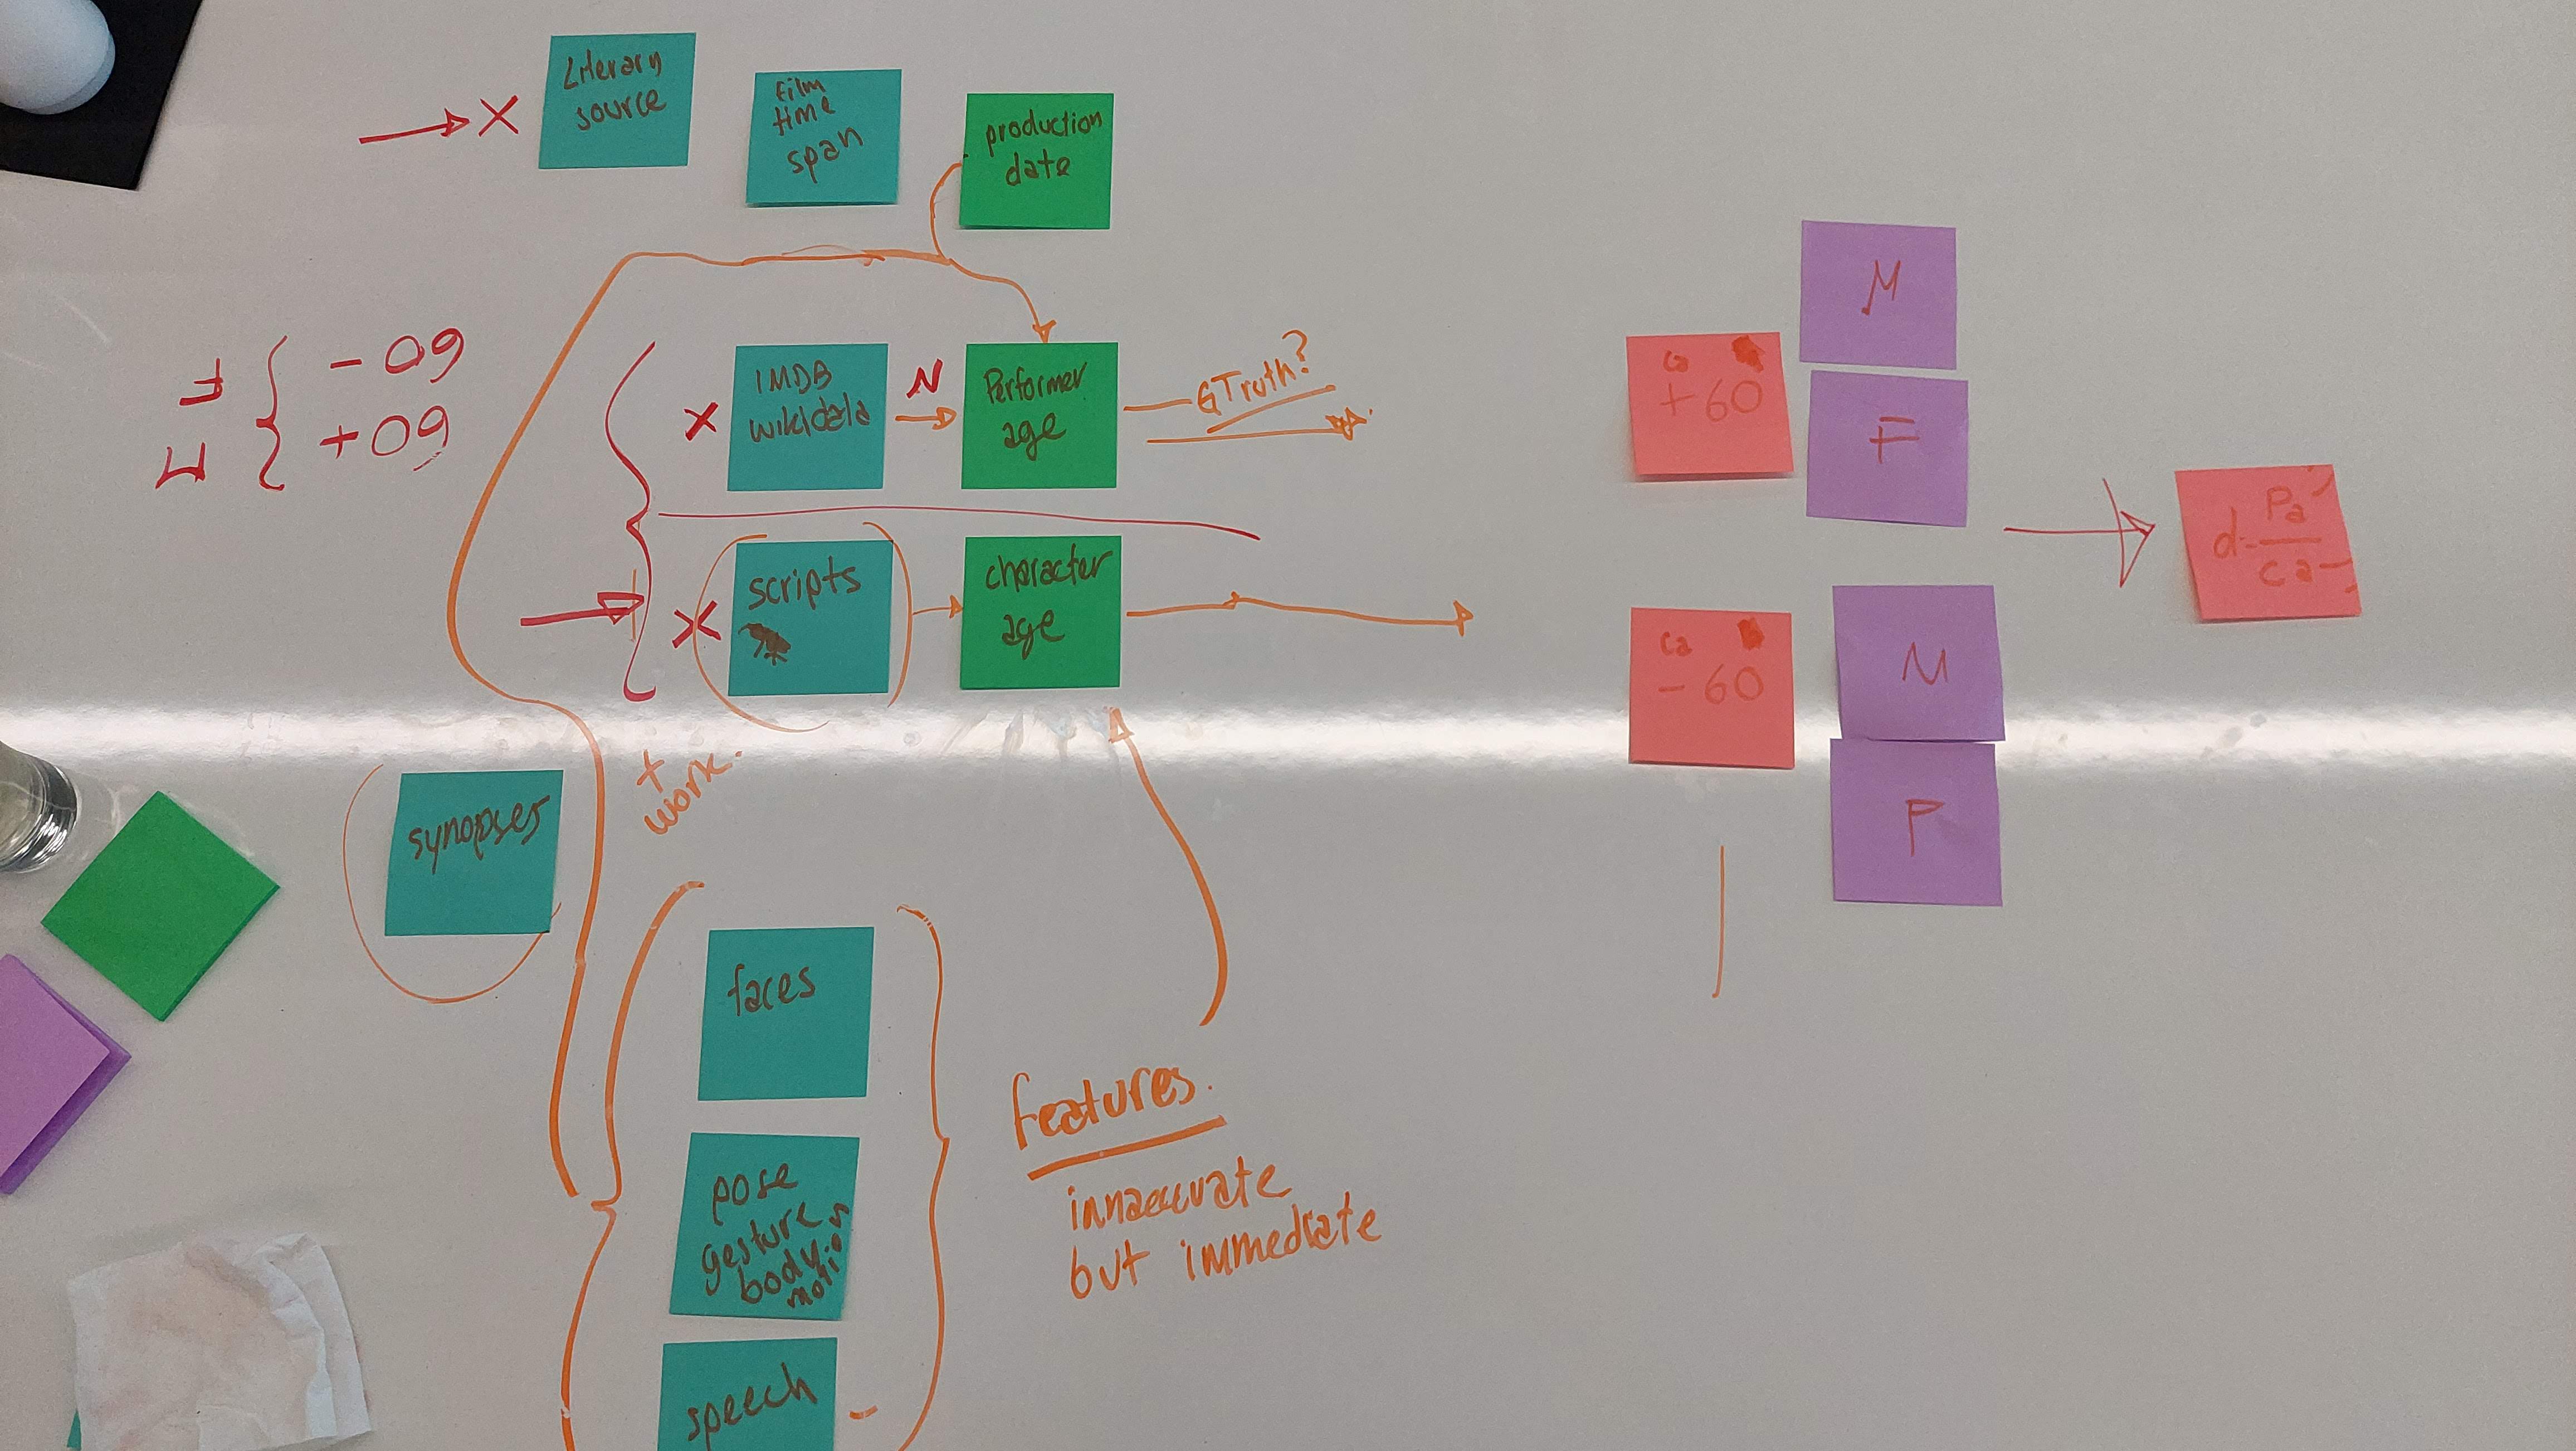 Literary
source
Film
time
span
production
date
X
- 60
+ 60
F
X
IMDB
wikidata
N
Performer
age
GTruth?
X
scripts
character
age
+
work.
synopses
faces
pose
gesture
body
motion
speech
features.
innaccurate
but immediate
ca
+60
M
F
ca
- 60
M
F
d-
Pa
Ca